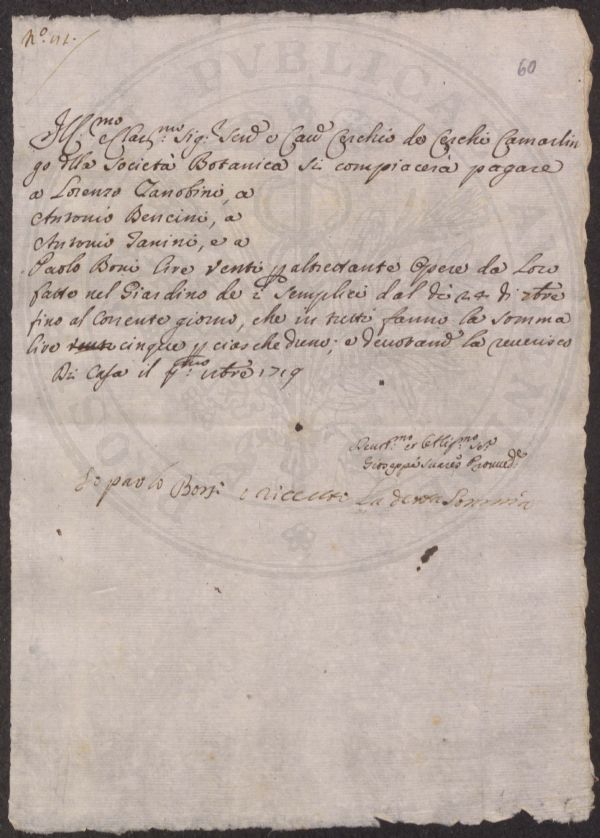 60
Ill:mo e Clar:mo Sig:r Send e Caud Cerchio de Cerchi Camarlin
go dlla Società Botanica si compiacerà pagare
a Lorenzo Zanobini, a
Antonio Bencini, a
Antonio Janini, e a
Paolo Boni lire venti p altrettante Opere da Loro
fatte nel Giardino de i Semplici dal dì 24 di 7bre
fino al Corrente giorno, che in tutti fanno la somma
lire venti cinque p ciascheduno; e devotand la reverisco
Di Casa il p:mo 1719
Giuseppe Suares Proved
Io paolo Boni o riceuto La detta Somma